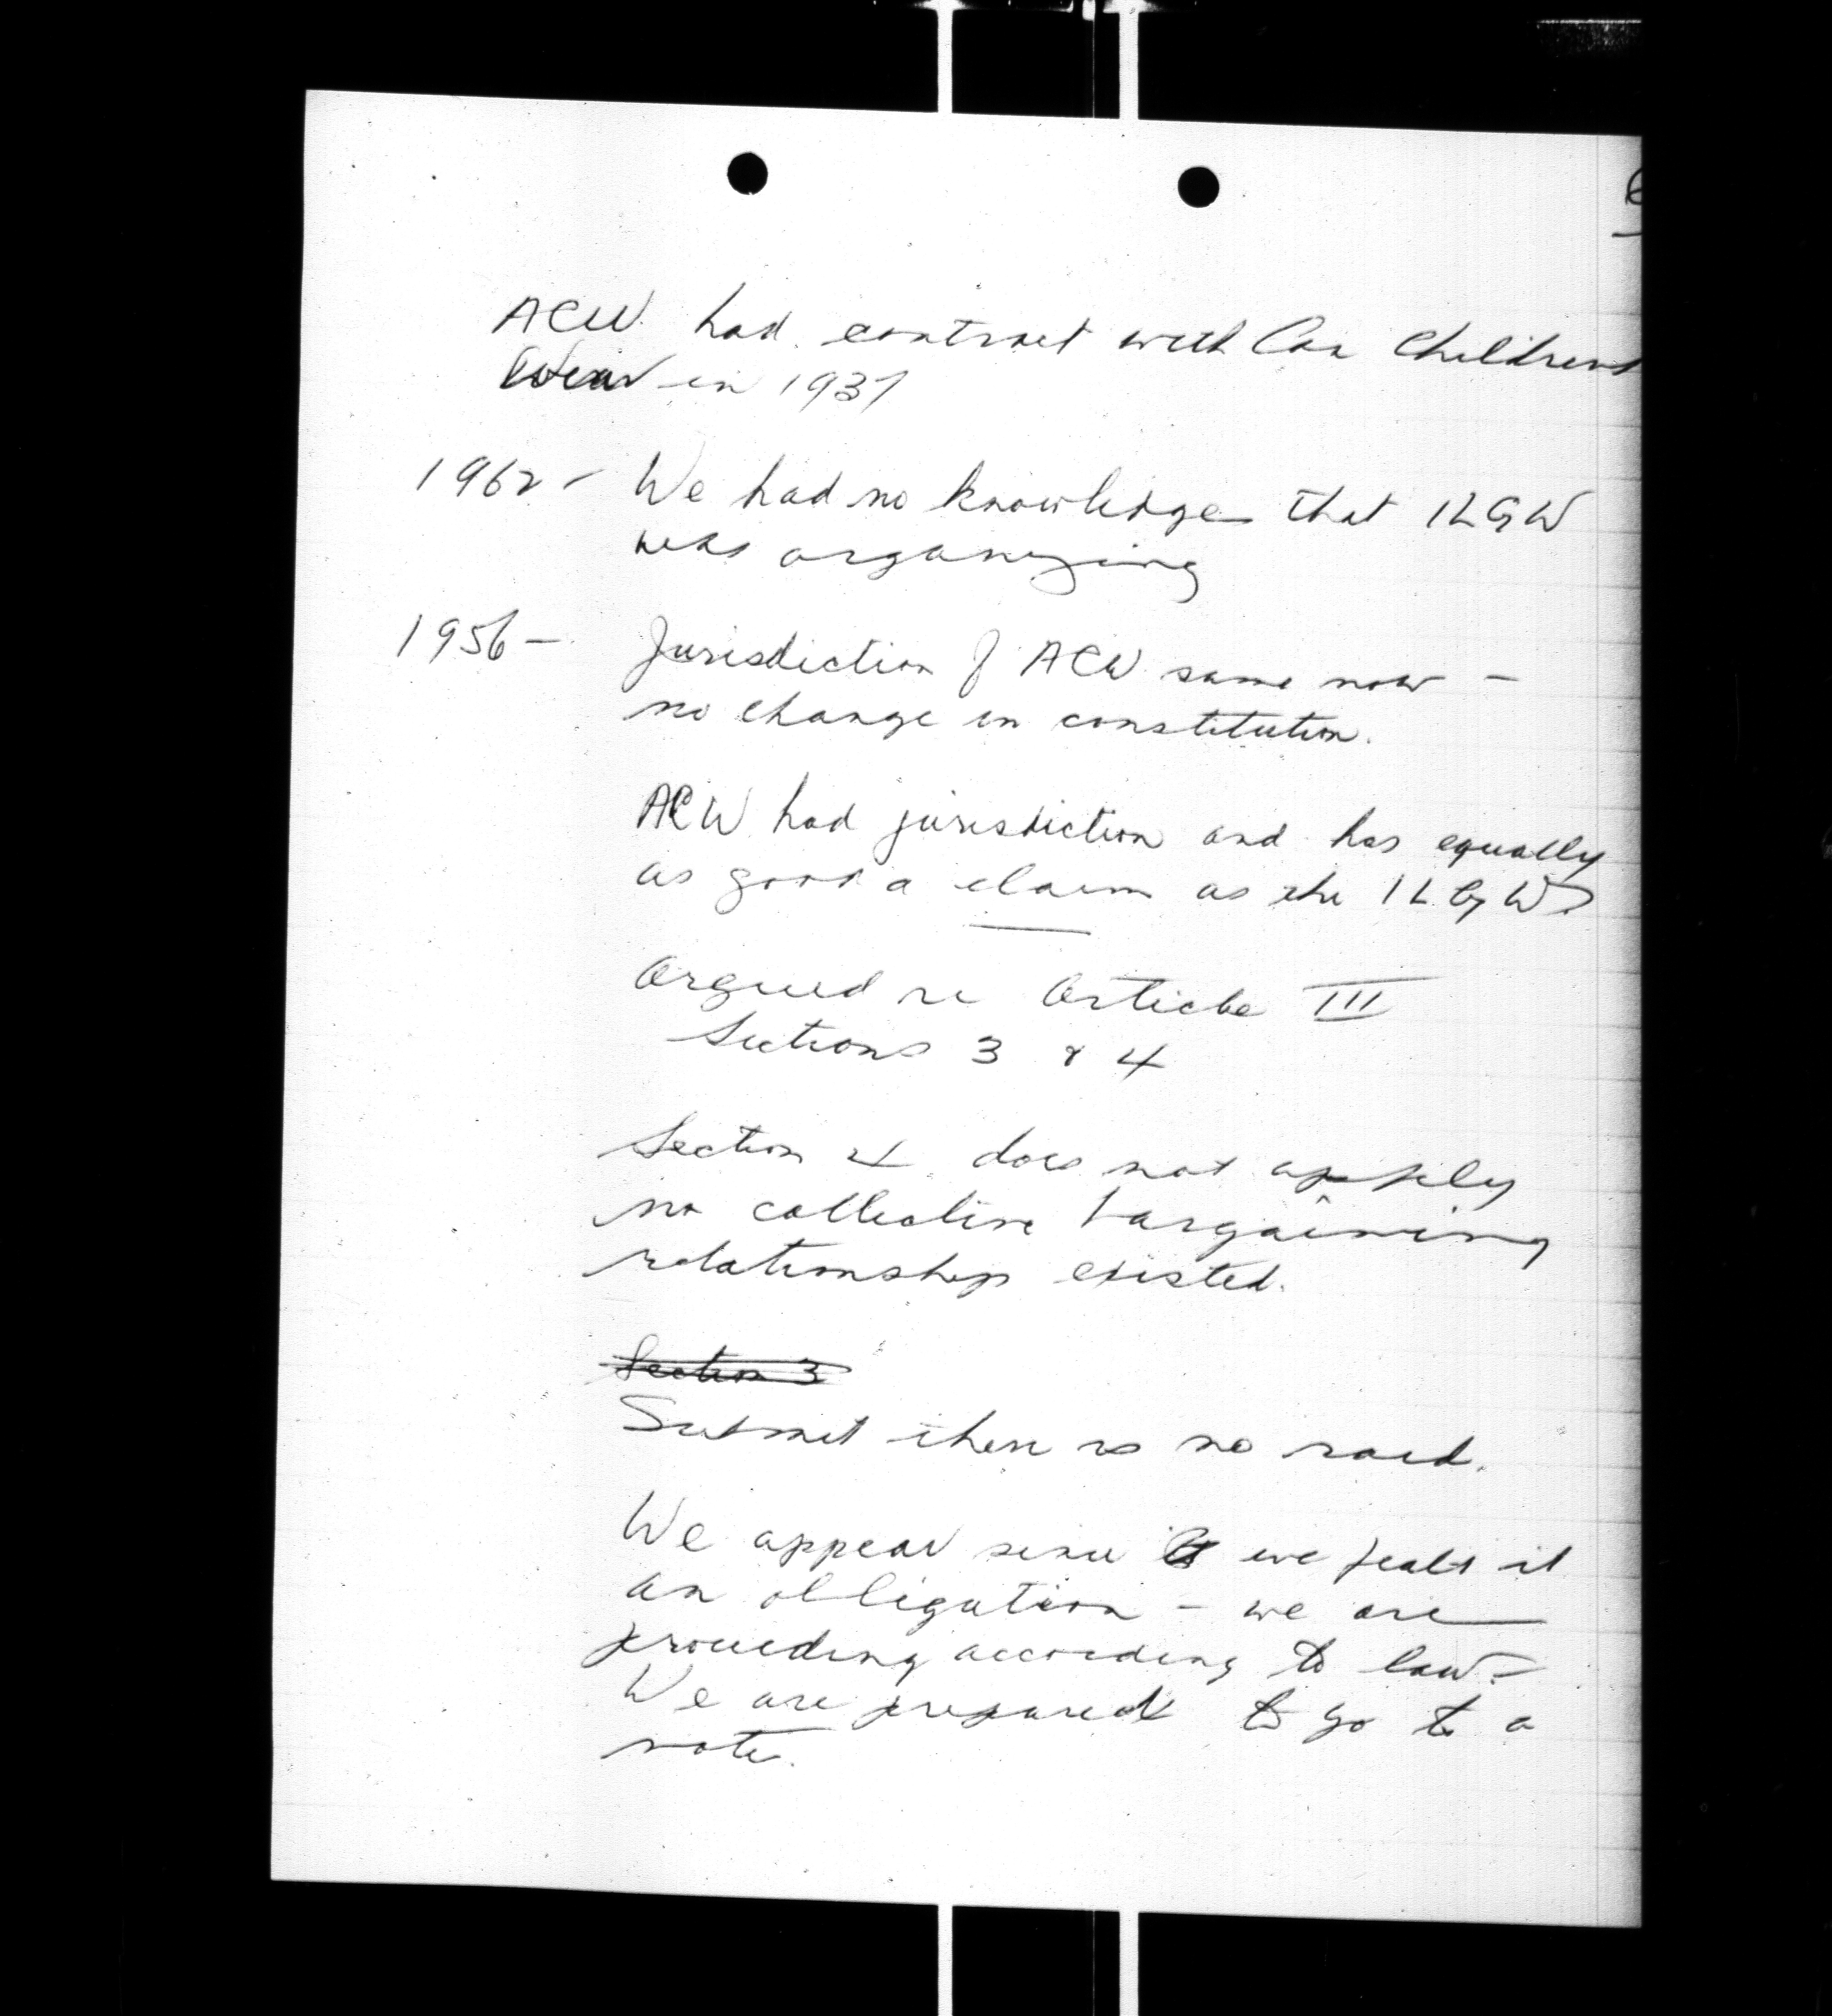 ACW had contract with Can Childrens
Wear in 1937
1962 - We had no knowledge that ILGW
was organizing
1956 - Jurisdiction of ACW same now -
no change in constitution.
ACW had jurisdiction and has equally
as good a claim as the ILGW
Argued re Article III
Sections 3 & 4
Section 4 does not apply
no collective bargaining
relationship existed.
Section 3
Submit there is no raid.
We appear since we fealt it
an obligation - we are
proceeding according to law -
We are prepared to go to a
vote.